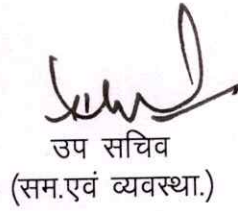 उप सचिव
(सम.एवं व्यवस्था.)